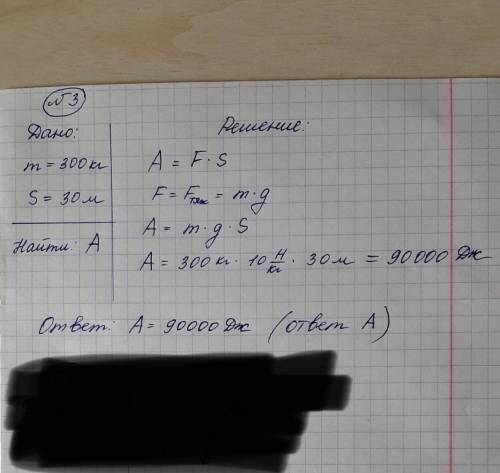 №3
Дано:
m = 300 кг
S = 30 м
Найти: A
Решение:
A = F · S
F = Fтяж = m · g
A = m · g · S
A = 300 кг · 10 Н/кг · 30 м = 90000 Дж
Ответ: A = 90000 Дж (ответ А)